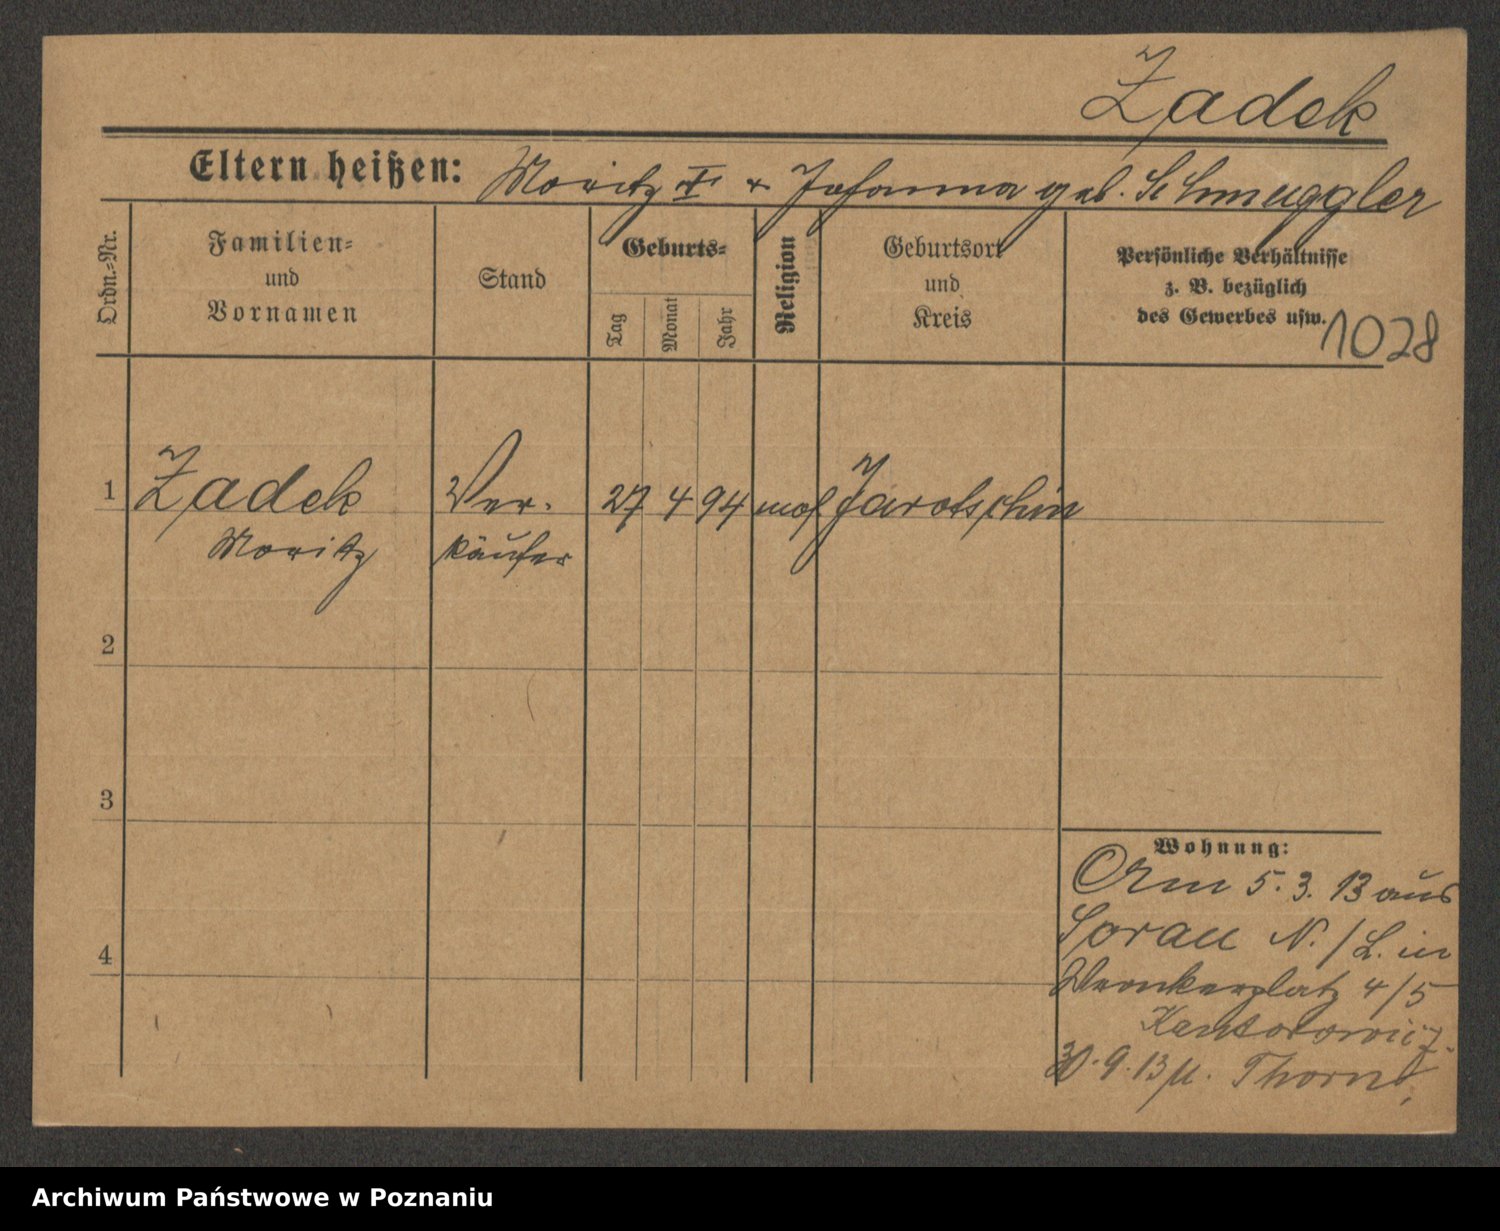 Zadek
Eltern heißen: Moritz I u Johanna geb. Schmuggler
Ordn.=Nr.
Familien=
und
Vornamen
Stand
Geburts=
Tag
Monat
Jahr
Religion
Geburtsort
und
Kreis
Persönliche Verhältnisse
z. B. bezüglich
des Gewerbes usw.
1028
1 Zadek Ver- 27 4 94 mos Jarotschin
Moritz käufer
2
3
4
Wohnung:
Am 5. 3. 13 aus
Sorau N./L. in
Wronkerplatz 4/5
Kantorowicz.
30. 9. 13 n. Thorn
Archiwum Państwowe w Poznaniu